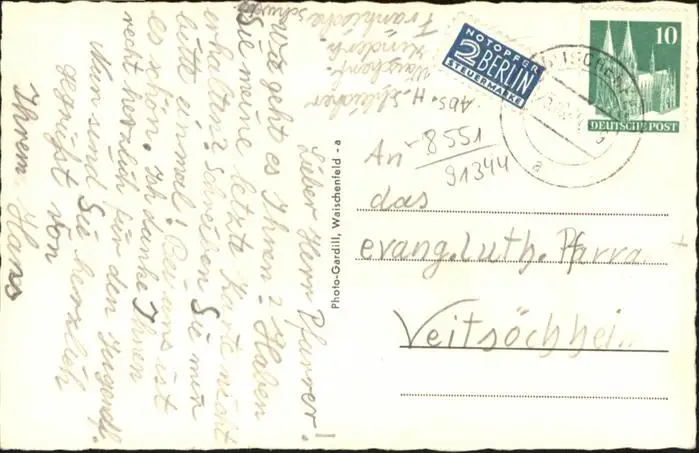 Lieber Herr Pfarrer.
Wo geht es Ihnen? Haben
Sie meine letzte Karte nicht
erhalten? schreiben Sie mir
bitte einmal! Bei uns ist
es schön. Ich danke Ihnen
recht herzlich für den Jugendf.
Nun sind Sie herzlich
gegrüßt von
Ihrem Hans
Abs. H.
Waischenf.
Fränkische Schweiz
Photo-Gardill, Waischenfeld - a
NOTOPFER
2 BERLIN
STEUERMARKE
10
DEUTSCHE POST
WAISCHENFELD
a
8551
91344
An
das
evang. Luth. Pfarramt
Veitsöchheim